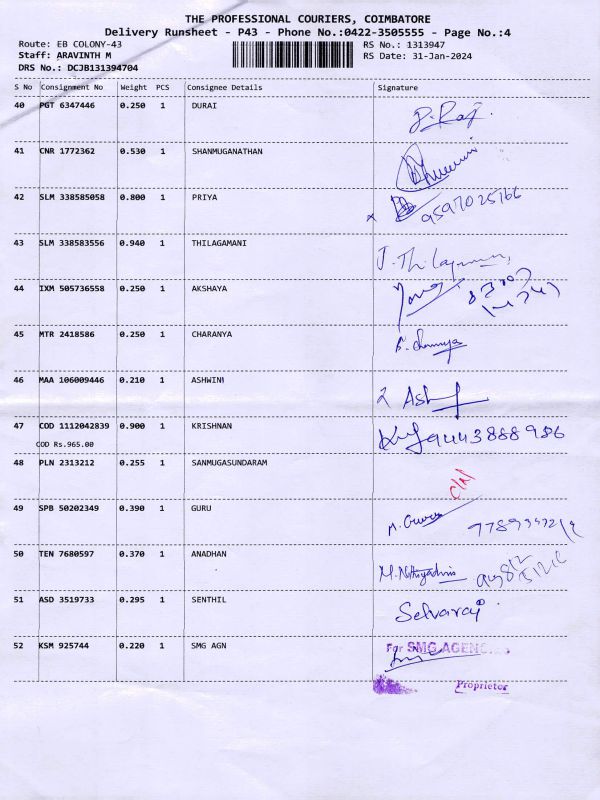 THE PROFESSIONAL COURIERS, COIMBATORE
Delivery Runsheet - P43 - Phone No.:0422-3505555 - Page No.:4
Route: EB COLONY-43 RS No.: 1313947
Staff: ARAVINTH M RS Date: 31-Jan-2024
DRS No.: DCJB131394704
S No Consignment No Weight PCS Consignee Details Signature
40 PGT 6347446 0.250 1 DURAI
41 CNR 1772362 0.530 1 SHANMUGANATHAN
42 SLM 338585058 0.800 1 PRIYA 9597025166
43 SLM 338583556 0.940 1 THILAGAMANI J. Thilagamani
44 IXM 505736558 0.250 1 AKSHAYA
45 MTR 2418586 0.250 1 CHARANYA
46 MAA 106009446 0.210 1 ASHWINI
47 COD 1112042839 0.900 1 KRISHNAN 9443888986
COD Rs.965.00
48 PLN 2313212 0.255 1 SANMUGASUNDARAM
49 SPB 50202349 0.390 1 GURU
50 TEN 7680597 0.370 1 ANADHAN
51 ASD 3519733 0.295 1 SENTHIL Selvaraj
52 KSM 925744 0.220 1 SMG AGN For SMG AGENC
Proprietor